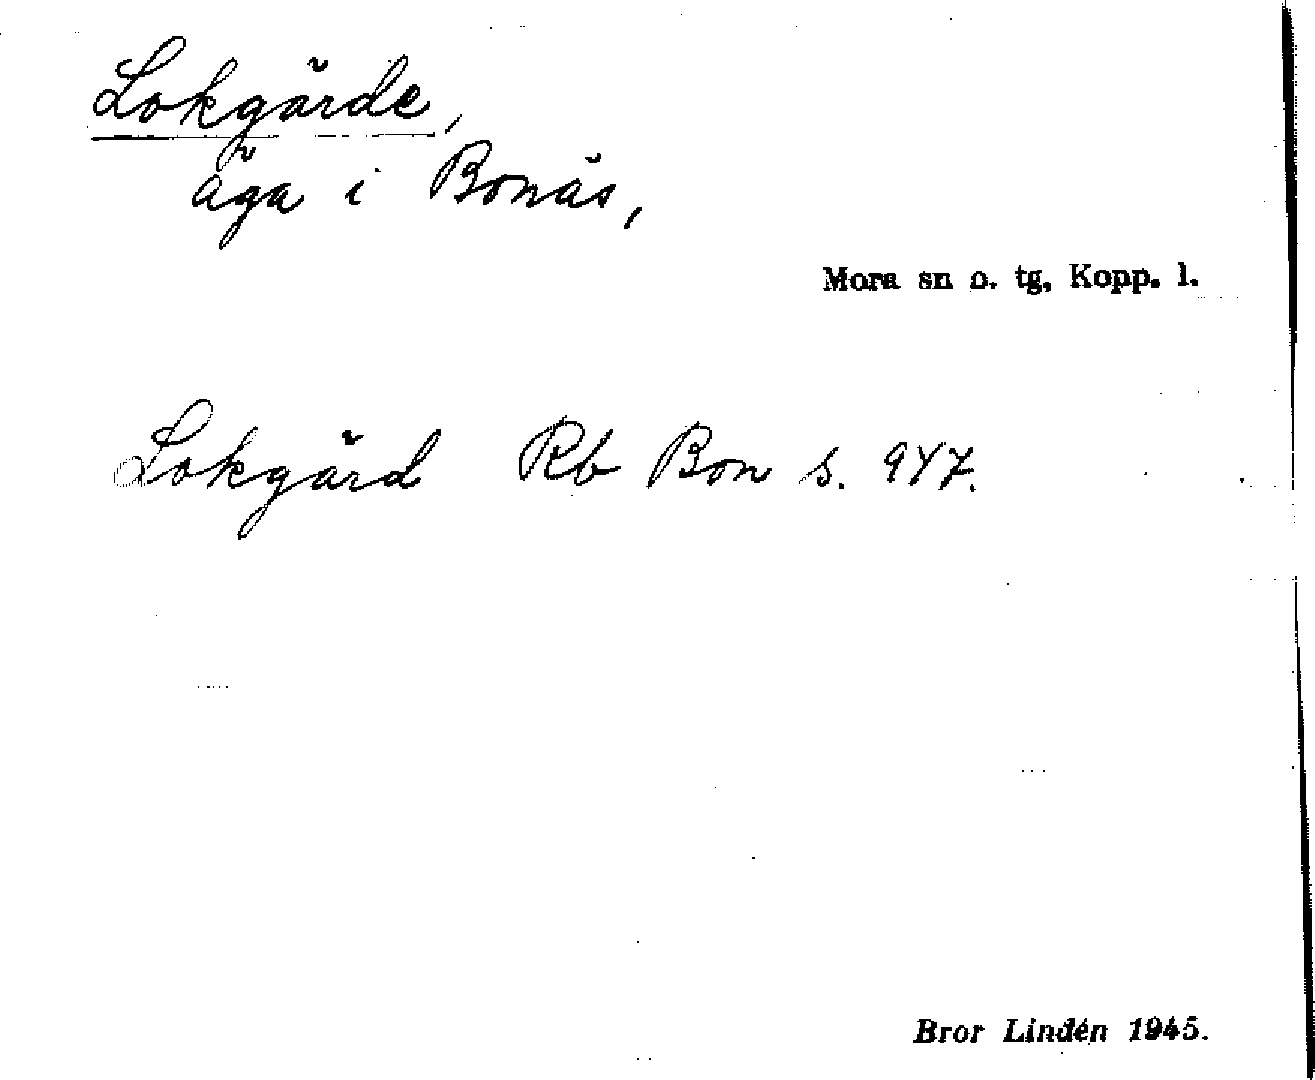 Lokgärde,
äga i Bonäs,
Mora sn o. tg, Kopp. l.
Lokgärd Rb Bon s. 947.
Bror Lindén 1945.